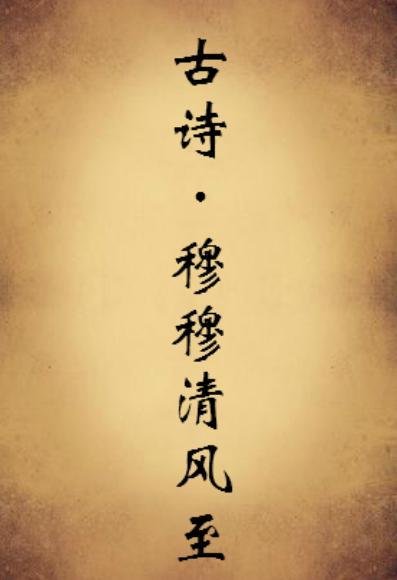 古诗·穆穆清风至